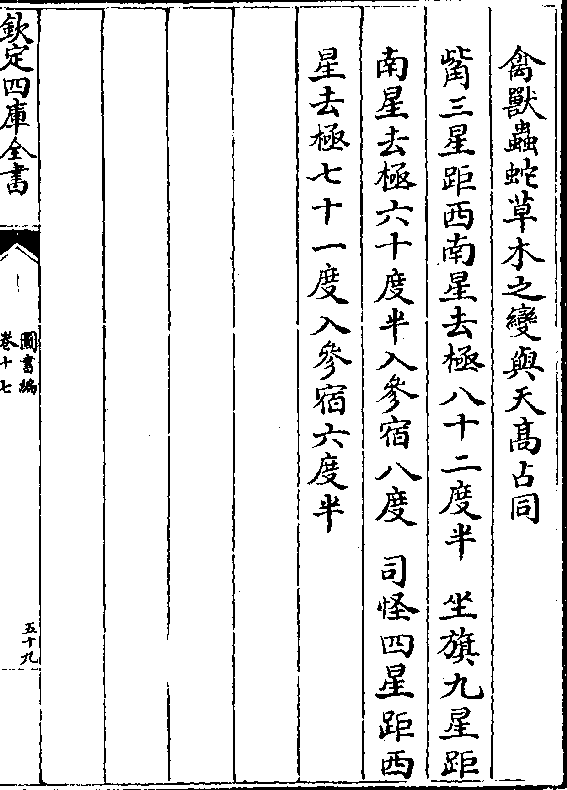 禽獸蟲蛇草木之變與天高占同
觜三星距西南星去極八十二度半 坐旗九星距
南星去極六十度半入參宿八度 司怪四星距西
星去極七十一度入參宿六度半
欽定四庫全書
圖書編
卷十七
五十九